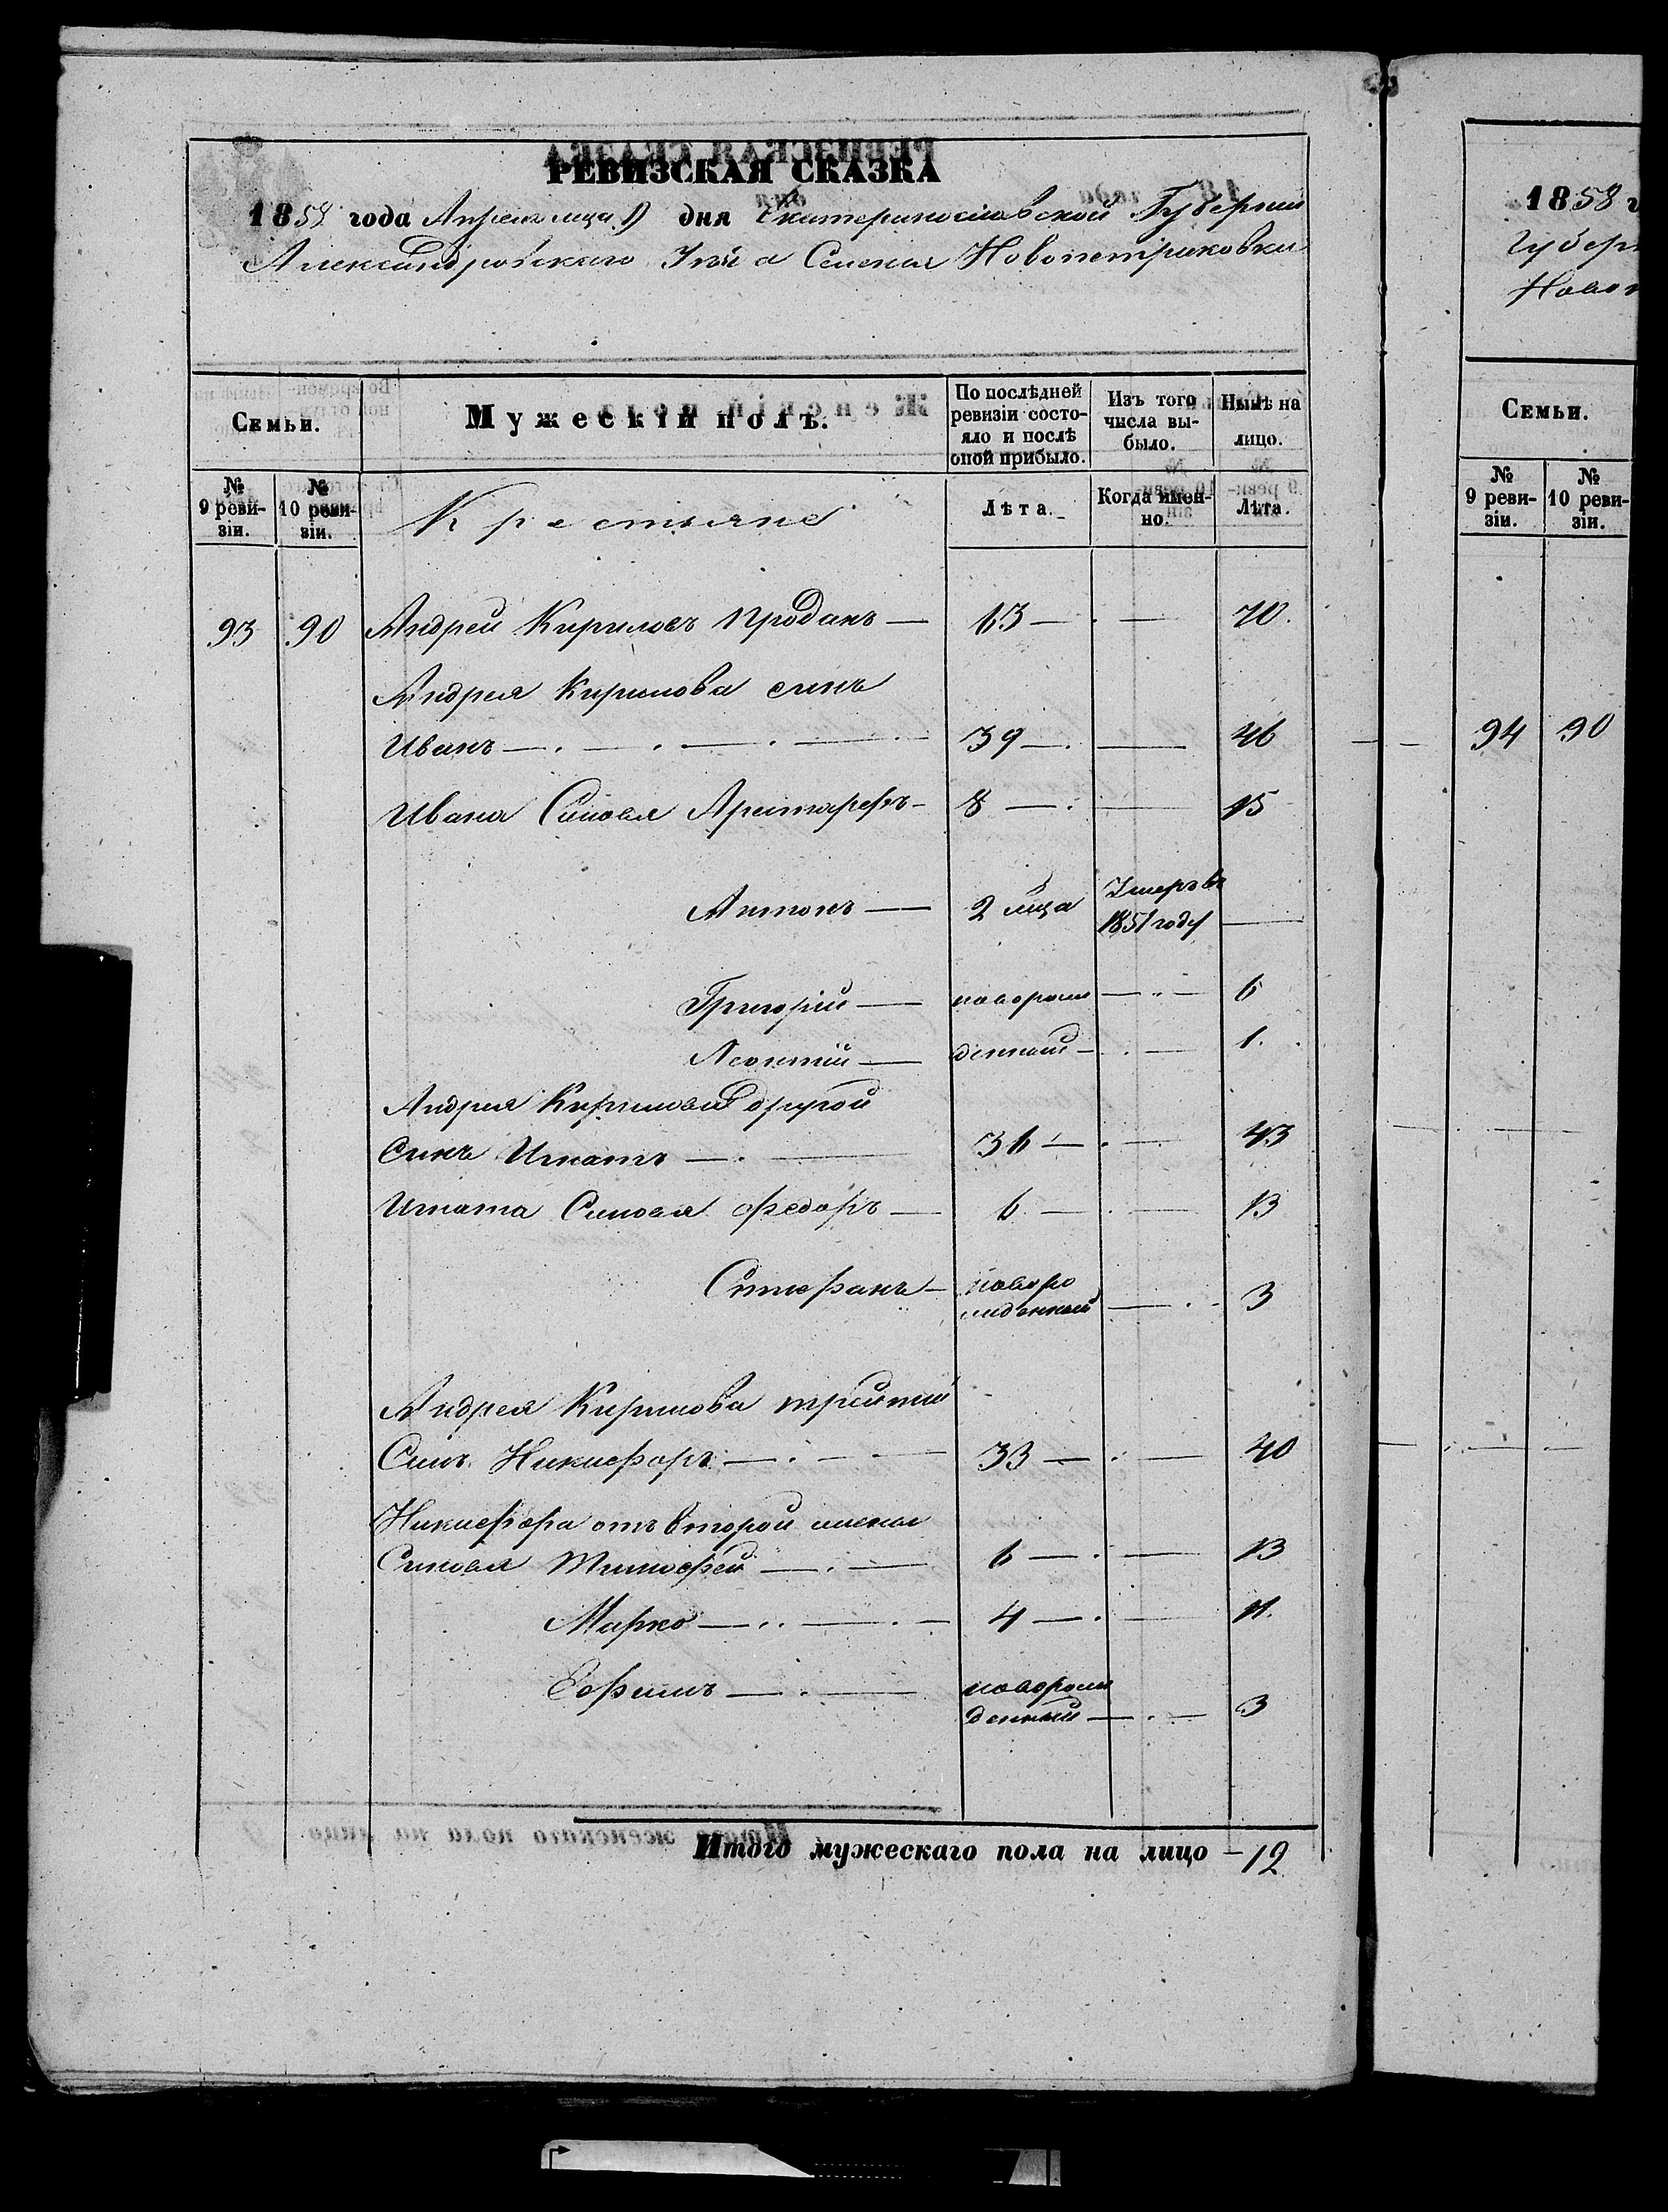 РЕВИЗСКАЯ СКАЗКА
1858 года Апреля мца дня Екатеринославской Губернии
Александровскаго Уѣзда Селенія Новопетриковки
Семьи. Мужескій полъ. По послѣдней ревизіи состояло и послѣ оной прибыло. Изъ того числа выбыло. Нынѣ на лицо.
№ 9 ревизіи. № 10 ревизіи. Крестьяне Лѣта. Когда именно. Лѣта.
93 90 Андрей Кириловъ Проданъ — 63 — — 70.
Андрея Кирилова синъ
Иванъ — 39 — — 46
Ивана Синовя Аристархъ — 8 — — 15
Антонъ — 2 мца Умеръ въ 1851 году —
Григорій — новорож — 6
Леонтій — денный — 1.
Андрея Кирилова другой
Синъ Игнатъ — 36 — — 43
Игната Синовя Федоръ — 6 — — 13
Стефанъ — новоро
жденный — 3
Андрея Кирилова третій
Синъ Никифоръ — 33 — — 40
Никифора отъ второй жены
Синовя Тимофей — 6 — — 13
Марко — 4 — — 11.
Ефимъ — новорож
денный — 3
Итого мужескаго пола на лицо — 12
1858 г
Губерн
Новоп
Семьи.
№ 9 ревизіи. № 10 ревизіи.
94 90